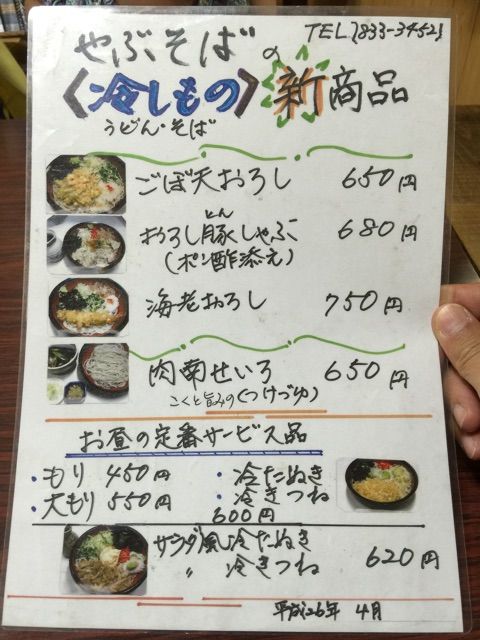 やぶそばの
TEL 833-3452
〈冷しもの〉新商品
うどん・そば
ごぼ天おろし 650円
おろし豚しゃぶ 680円
とん
(ポン酢添え)
海老おろし 750円
肉南せいろ 650円
こくと旨みの(つけづゆ)
お昼の定番サービス品
・もり 450円
・大もり 550円
・冷たぬき
・冷きつね
600円
サラダ風冷たぬき
〃 冷きつね
620円
平成26年 4月